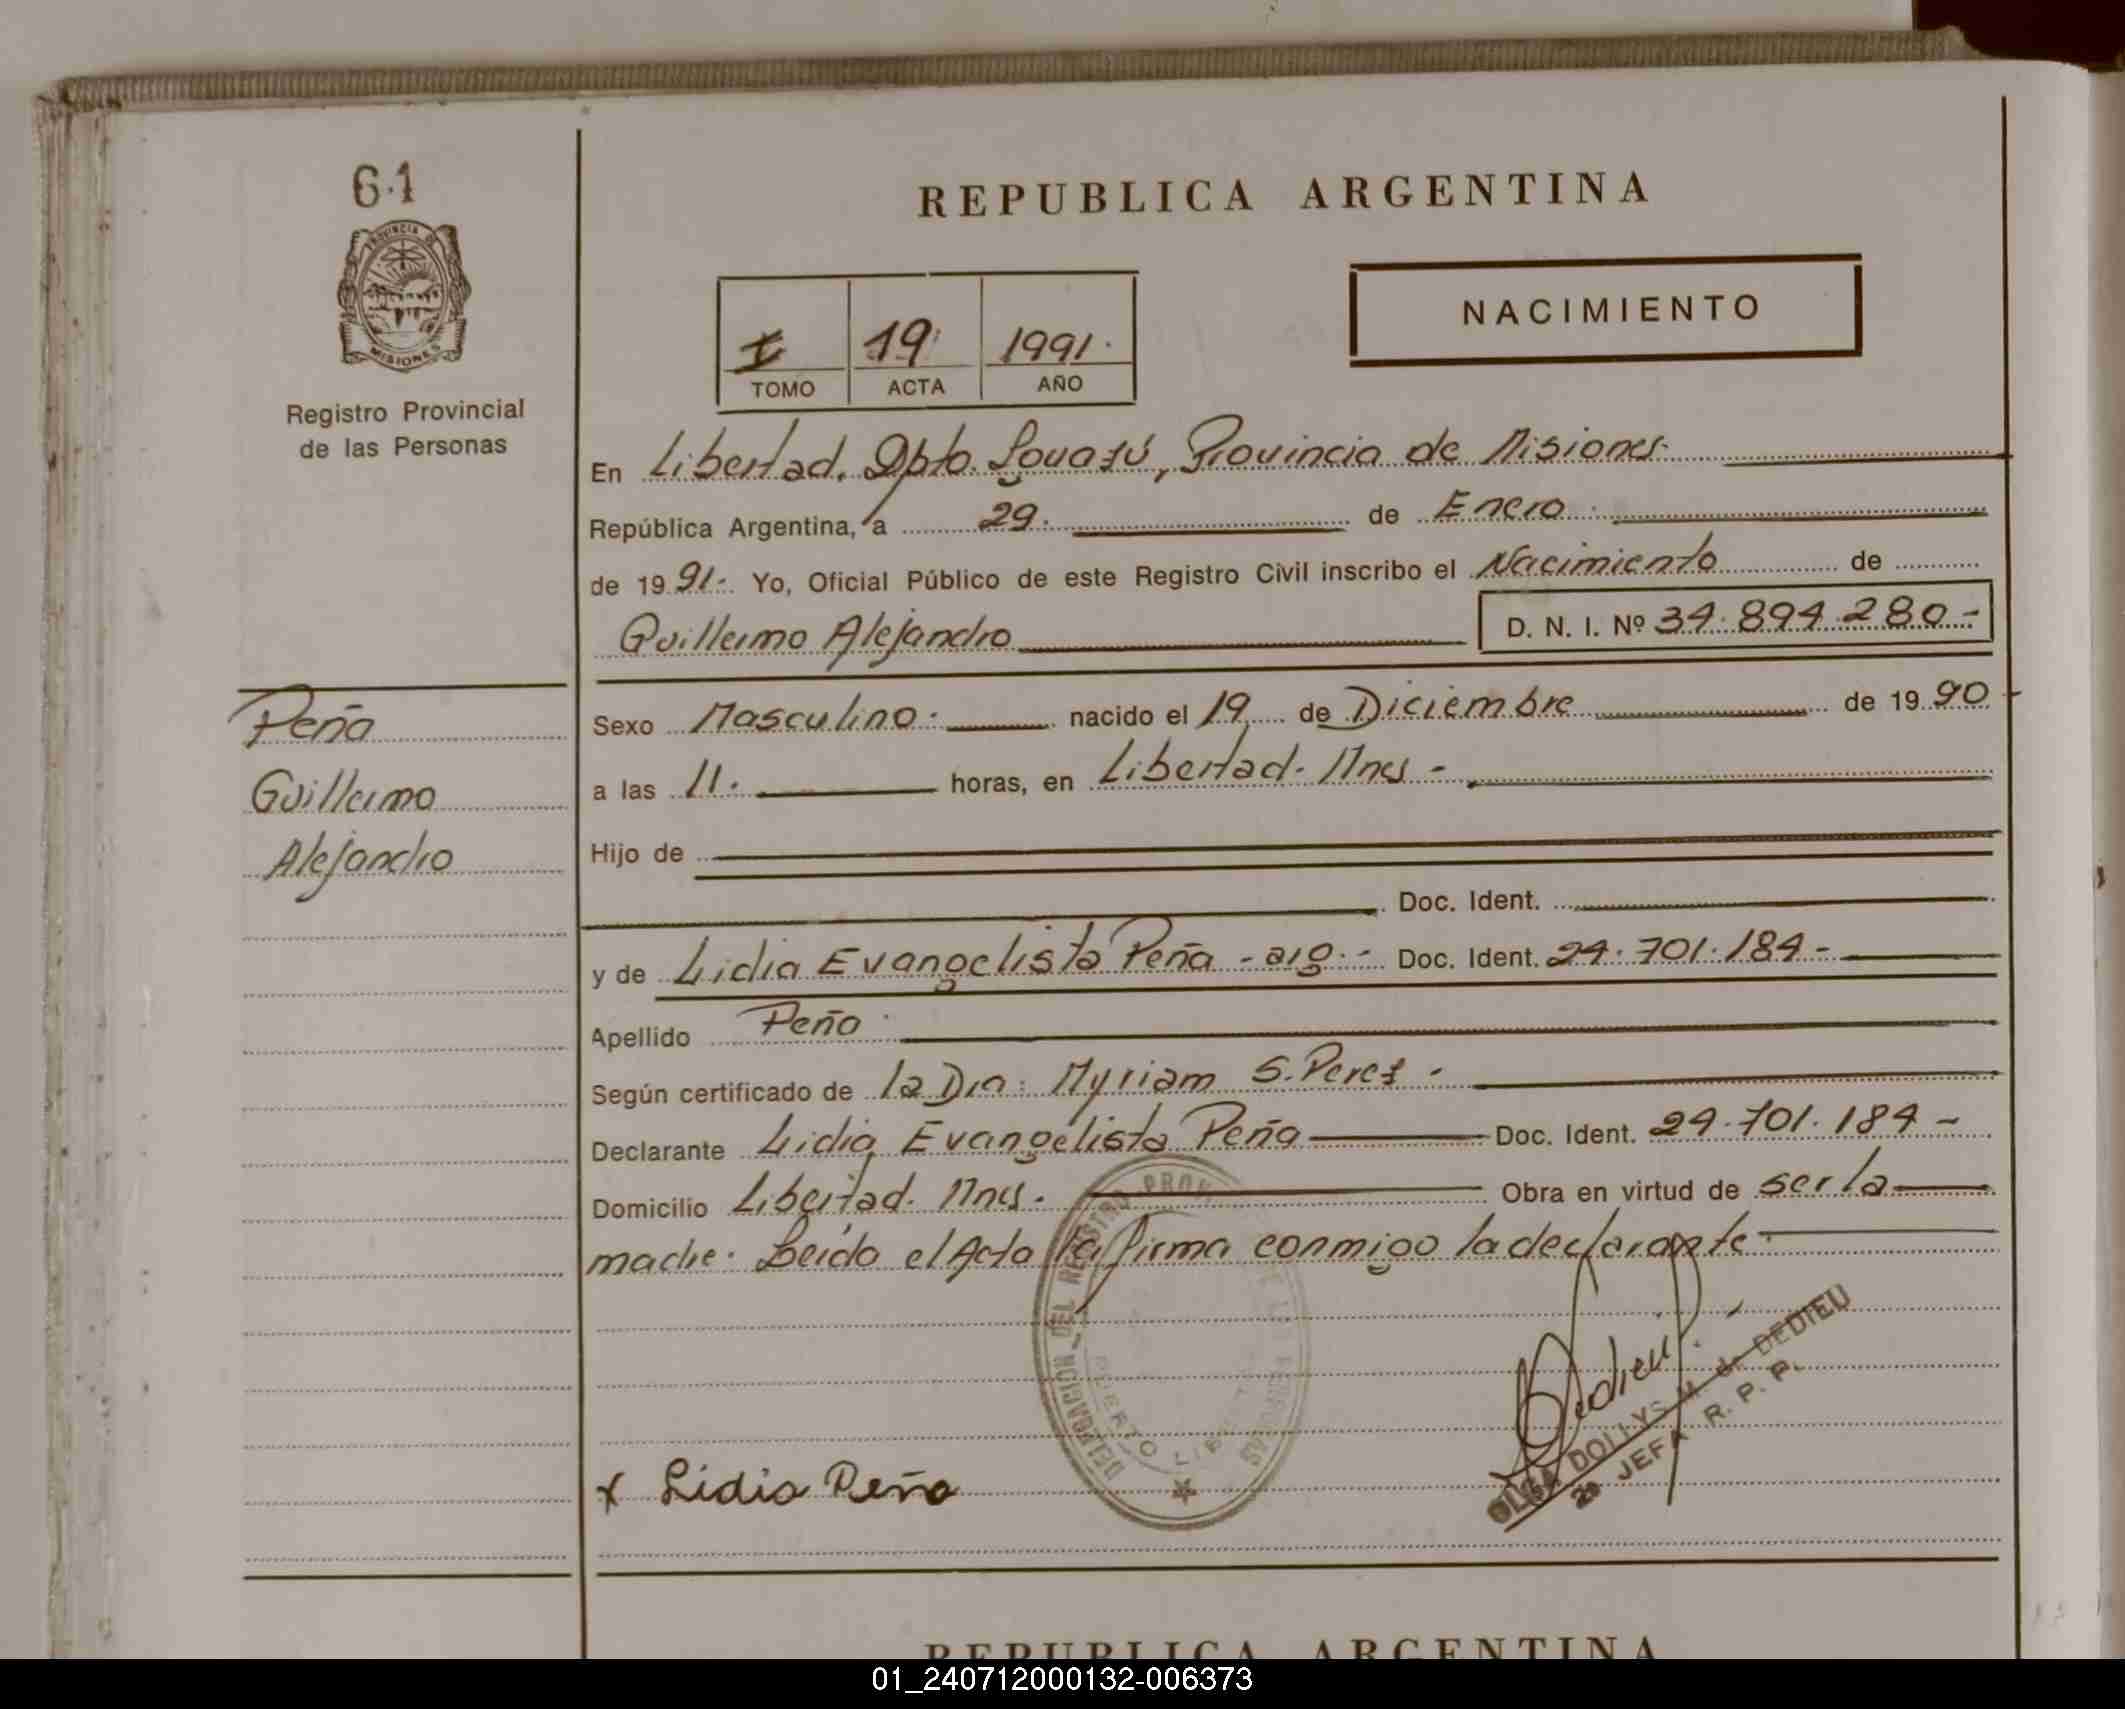 61
REPUBLICA ARGENTINA
PROVINCIA DE
MISIONES
NACIMIENTO
I 19 1991.
TOMO ACTA AÑO
Registro Provincial
de las Personas
En Libertad. Dpto. Iguazú, Provincia de Misiones
República Argentina, a 29. de Enero
de 1991. Yo, Oficial Público de este Registro Civil inscribo el Nacimiento de
Guillermo Alejandro D. N. I. Nº 34.894.280-
Peña
Guillermo
Alejandro
Sexo Masculino. nacido el 19 de Diciembre de 1990
a las 11. horas, en Libertad. Mnes -
Hijo de
Doc. Ident.
y de Lidia Evangelista Peña - arg. - Doc. Ident. 24.701.184-
Apellido Peña
Según certificado de la Dra. Myriam S. Perez -
Declarante Lidia Evangelista Peña Doc. Ident. 24.701.184 -
Domicilio Libertad. Mnes. Obra en virtud de ser la
madre. Leído el Acta la firma conmigo la declarante
DELEGACION DEL REGISTRO PROV DE LAS PERSONAS
PUERTO LIBERTAD
Dedieu
OLGA DOLLYS M. de DEDIEU
2a JEFA R. P. P.
x Lidia Peña
REPUBLICA ARGENTINA
01_240712000132-006373